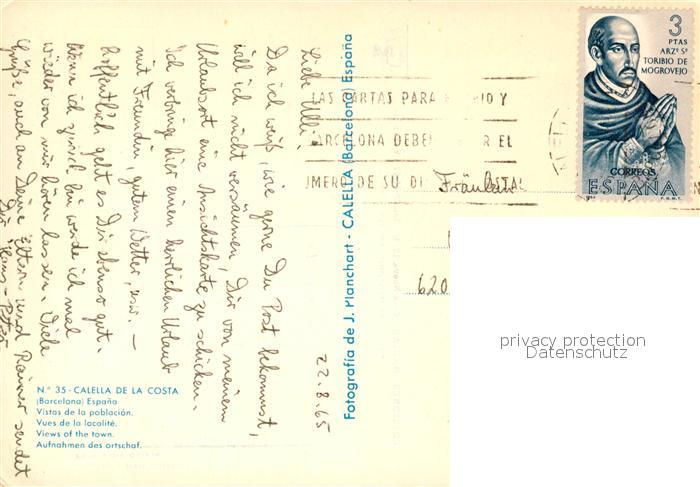 22.8.65
Liebe Ulli!
Da ich weiß, wie gerne Du Post bekommst,
will ich nicht versäumen, Dir von meinem
Urlaubsort eine Ansichtskarte zu schicken.
Ich verbring hier einen herrlichen Urlaub
mit Freunden, gutem Wetter, usw. –
Hoffentlich geht es Dir ebenso gut.
Wenn ich zurück bin werde ich mal
wieder von mir hören lassen. Viele
Grüße, auch an Deine Eltern und Rainer sendet
Dir Hans-Peter
Fotografía de J. Planchart - CALELLA (Barcelona) España
N.° 35 - CALELLA DE LA COSTA
(Barcelona) España
Vistas de la población.
Vues de la localité.
Views of the town.
Aufnahmen des ortschaf.
LAS CARTAS PARA Y
BARCELONA DEBEN EL
NUMERO DE SU POSTAL
3
PTAS
ARZ° S°
TORIBIO DE
MOGROVEJO
CORREOS
ESPAÑA
F.N.M.T.
Fräulein
620
privacy protection
Datenschutz